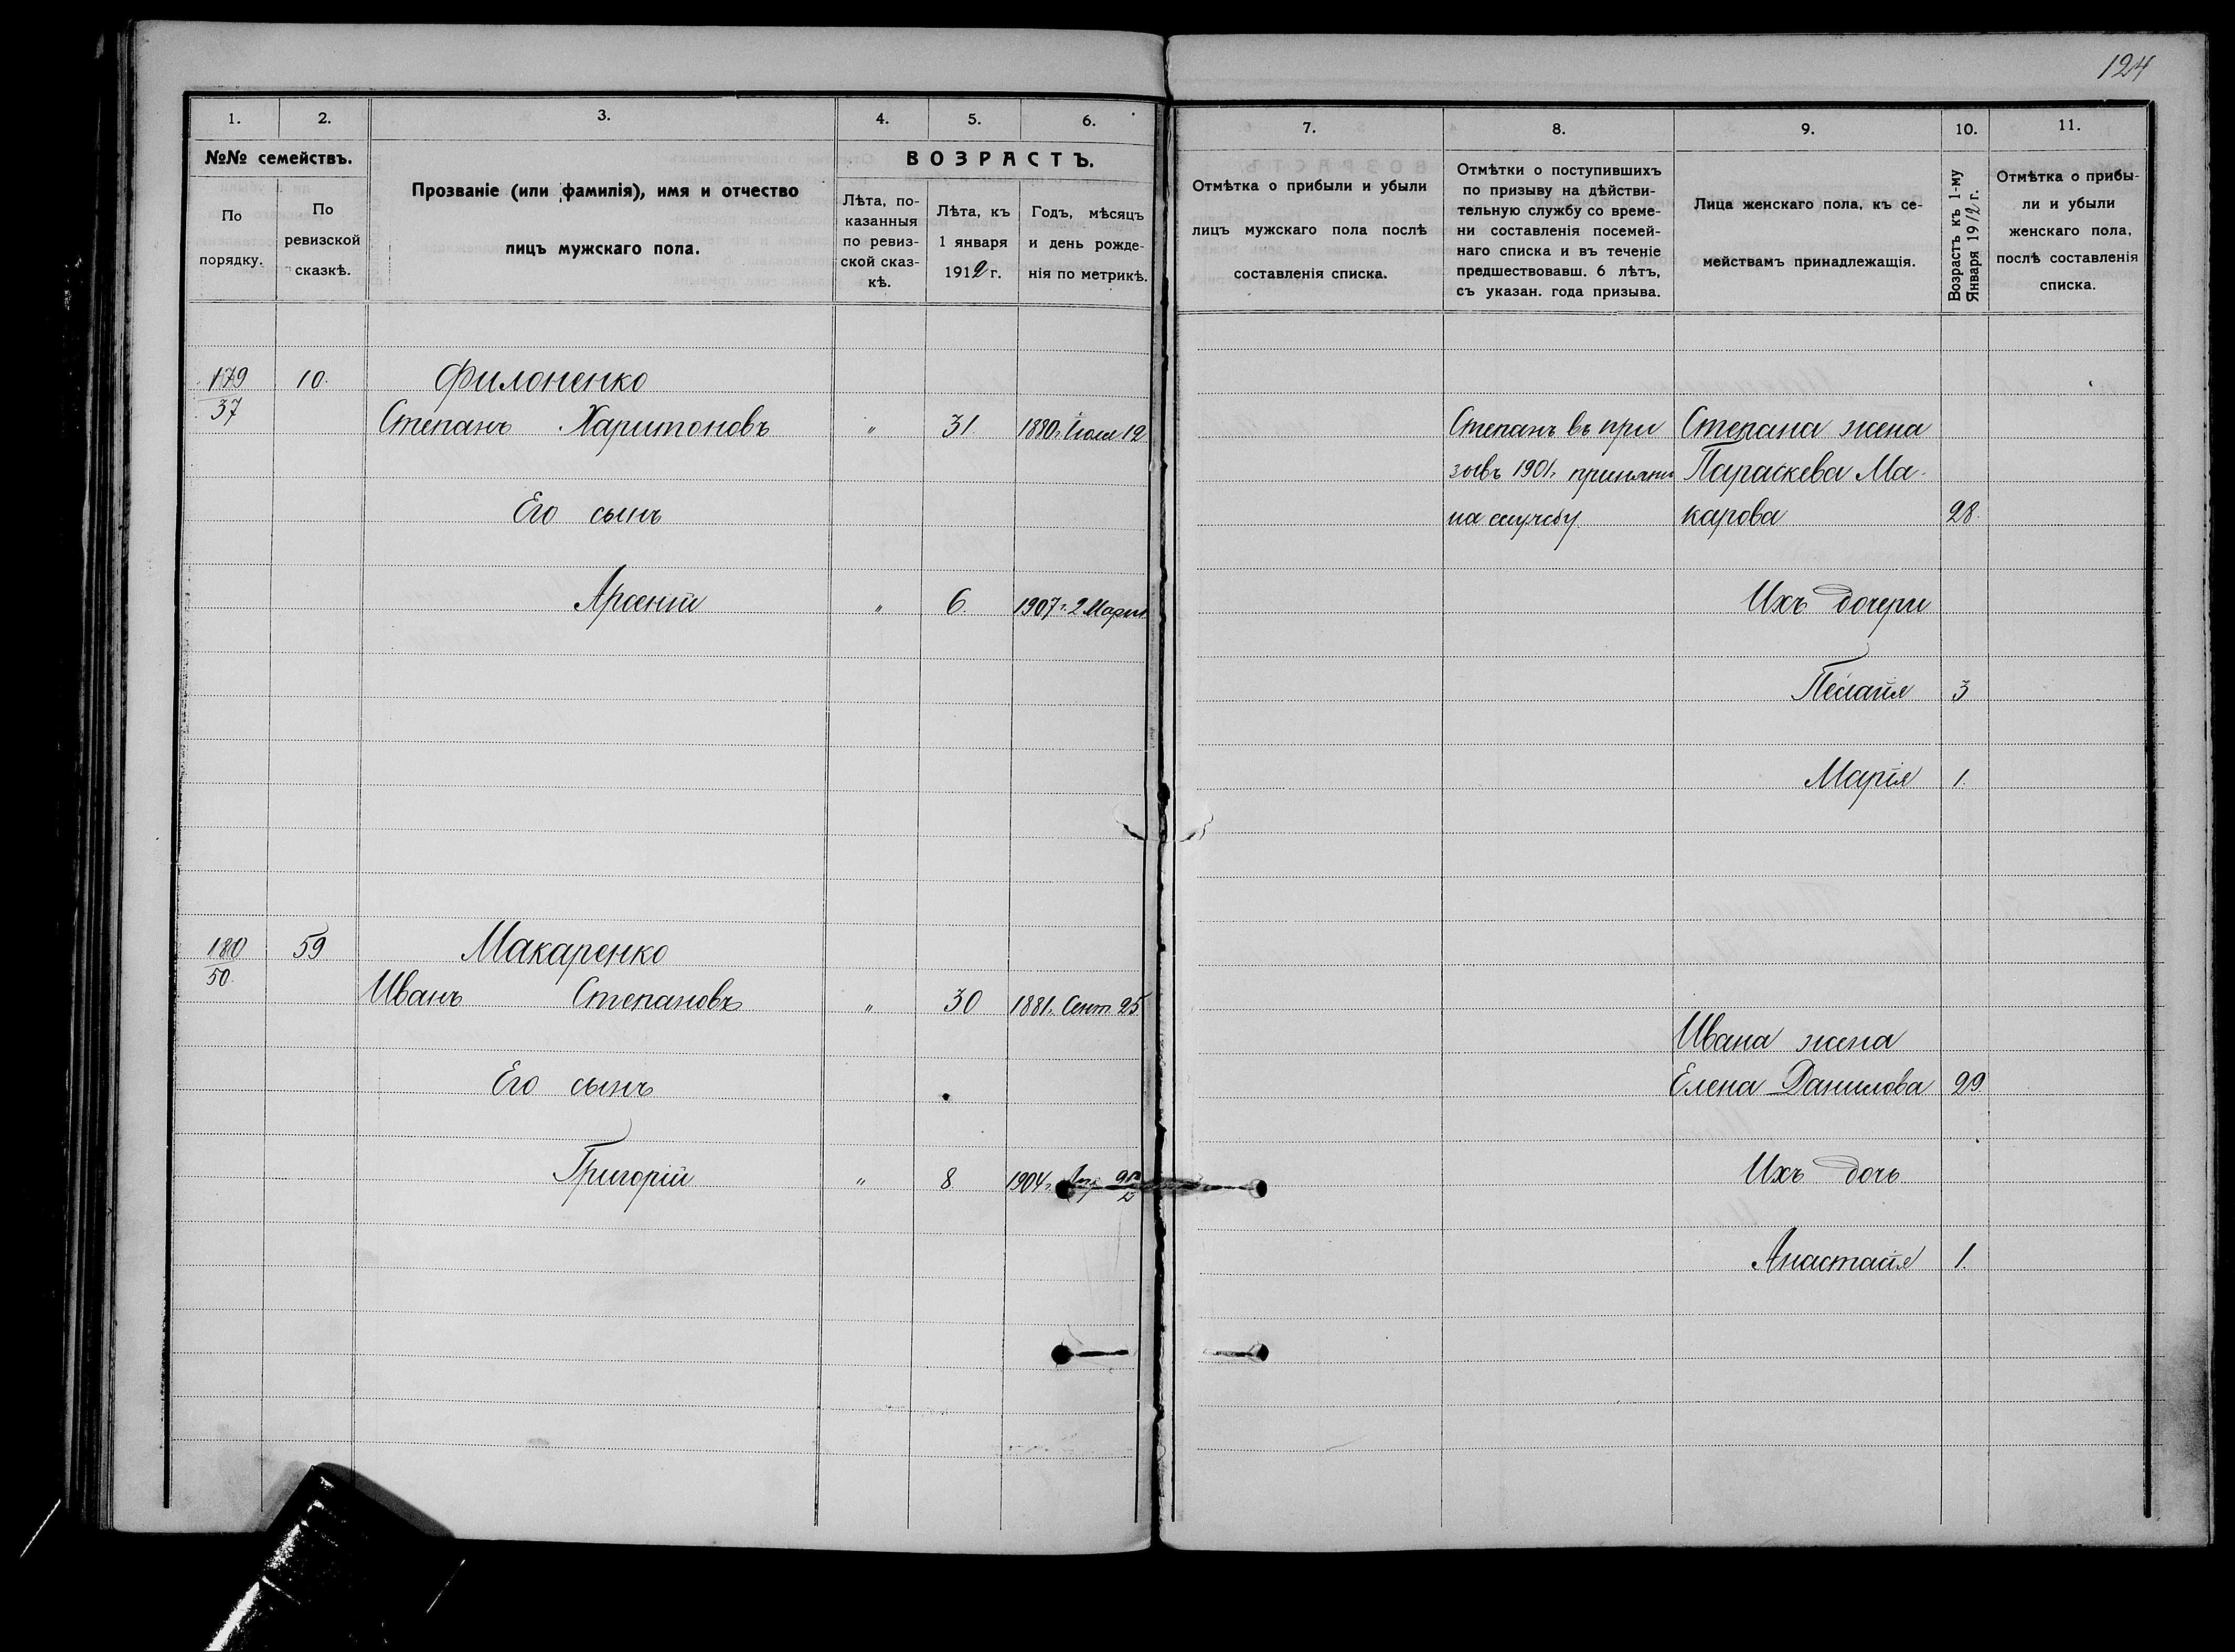 124
1.
2.
3.
4.
5.
6.
№№ семействъ.
По
порядку.
По
ревизской
сказкѣ.
Прозваніе (или фамилія), имя и отчество
лицъ мужскаго пола.
ВОЗРАСТЪ.
Лѣта, по-
казанныя
по ревиз-
ской сказ-
кѣ.
Лѣта, къ
1 января
1912 г.
Годъ, мѣсяцъ
и день рожде-
нія по метрикѣ.
7.
8.
9.
10.
11.
Отмѣтка о прибыли и убыли
лицъ мужского пола послѣ
составленія списка.
Отмѣтки о поступившихъ
по призыву на дѣйстви-
тельную службу со време-
ни составленія посемей-
наго списка и въ теченіе
предшествовавш. 6 лѣтъ,
съ указан. года призыва.
Лица женскаго пола, къ се-
мействамъ принадлежащія.
Возрастъ къ 1-му
Января 1912 г.
Отмѣтка о прибы-
ли и убыли
женскаго пола,
послѣ составленія
списка.
179 10. Филоненко
37
Степанъ Харитоновъ " 31. 1880 г. Іюля 12
Его сынъ
Арсеній " 6. 1907 г. 2 Марта
180 59 Макаренко
50.
Иванъ Степановъ " 30 1881 г. Сент. 25
Его сынъ
Григорій " 8 1904 г.
Степанъ въ при
зывъ 1901 г. принятъ
на службу.
Степана жена
Параскева Ма-
карова 28.
Ихъ дочери
Пелагія 3
Марія 1.
Ивана жена
Елена Данилова 29.
Ихъ дочь
Анастасія 1.